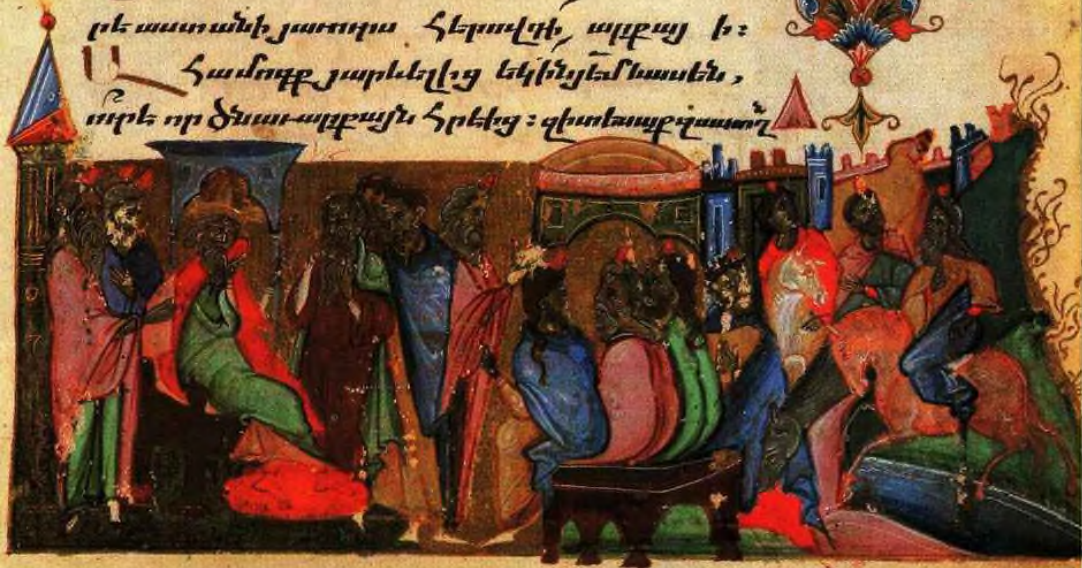 րէաստանի յաւուրս Հերովդի, արքայի։
ԱՀա մոգք յարևելից եկին յէմ և ասեն,
ուր է որ ծնաւ արքայն Հրէից։ զի տեսաք զաստղ